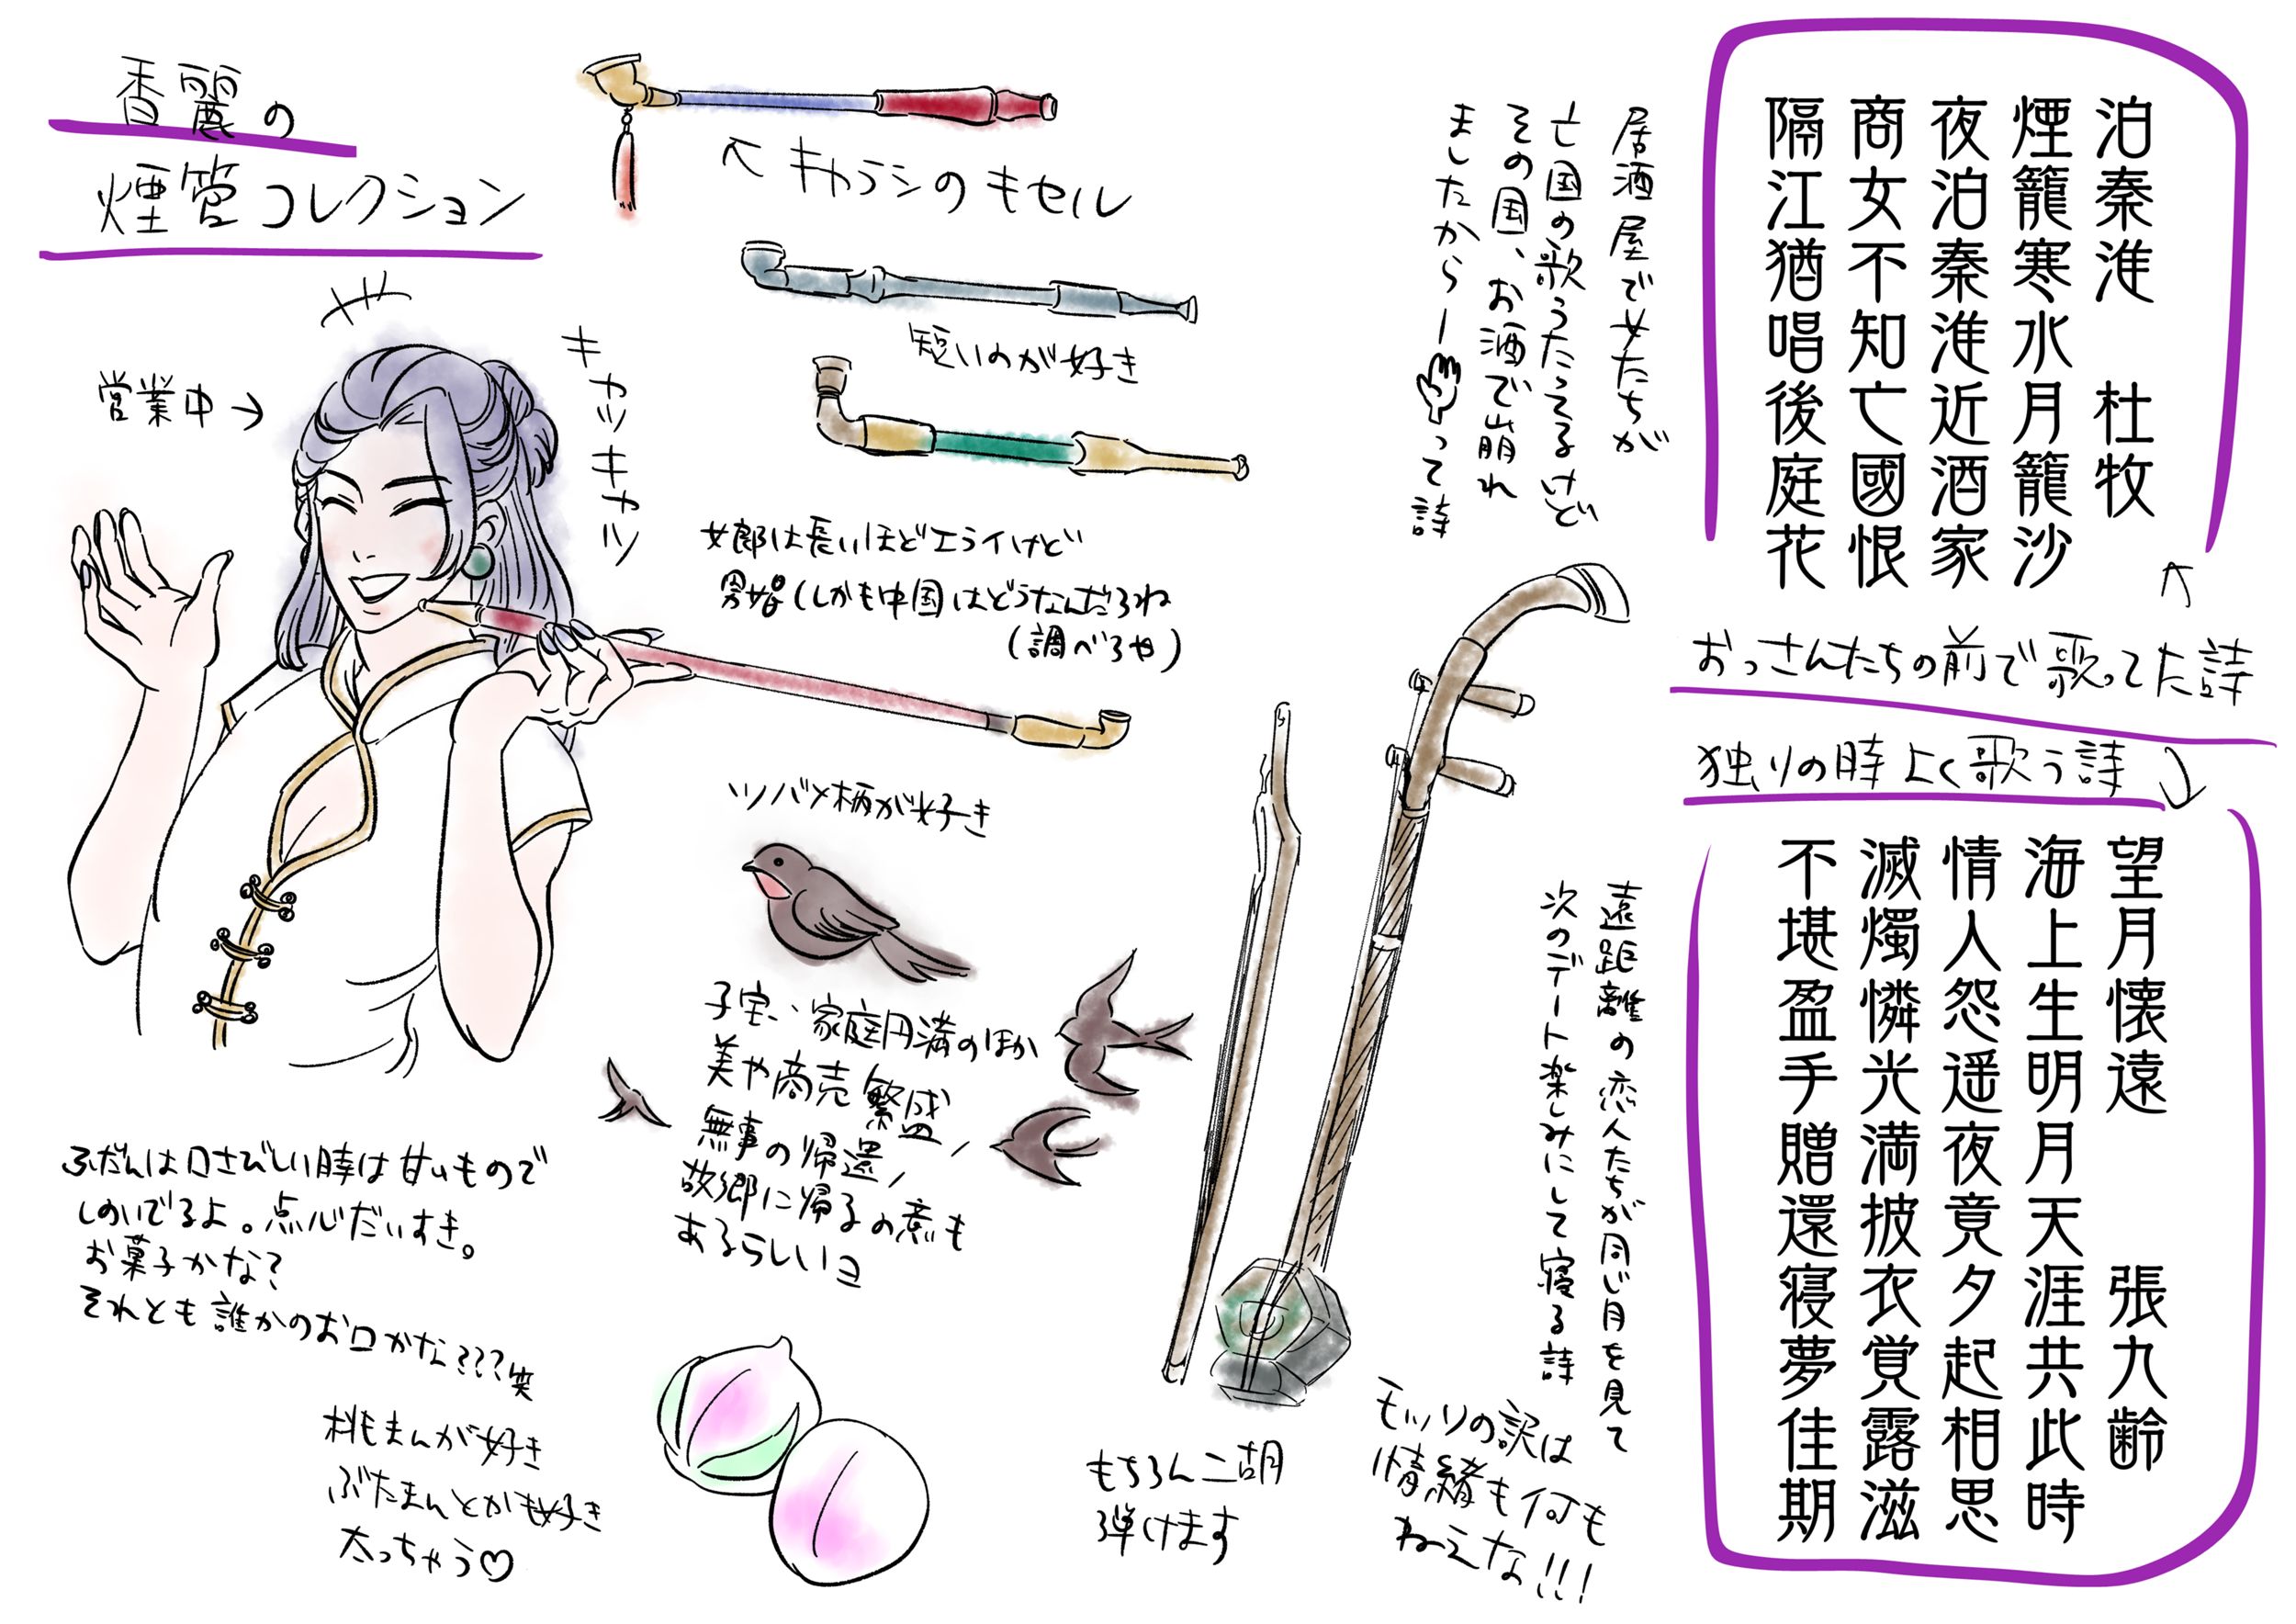 香麗の
煙管コレクション
↖ キャラシのキセル
短いのが好き
営業中→
キャッキャッ
女郎は長いほどエライけど
男娼(しかも中国はどうなんだろね
(調べろや)
ツバメ柄が好き
子宝、家庭円満のほか
美や商売繁盛、
無事の帰還、
故郷に帰るの意も
あるらしいヨ
ふだんは口さびしい時は甘いもので
しのいでるよ。点心だいすき。
お菓子かな?
それとも誰かのお口かな???笑
桃まんが好き
ぶたまんとかも好き
太っちゃう♡
もちろん二胡
弾けます
泊秦淮 杜牧
煙籠寒水月籠沙
夜泊秦淮近酒家
商女不知亡國恨
隔江猶唱後庭花
居酒屋で女たちが
亡国の歌うたってるけど
その国、お酒で崩れ
ましたからー👋って詩
↑
おっさんたちの前で歌ってた詩
独りの時よく歌う詩
望月懐遠 張九齢
海上生明月天涯共此時
情人怨遥夜竟夕起相思
滅燭憐光満披衣覚露滋
不堪盈手贈還寝夢佳期
遠距離の恋人たちが同じ月を見て
次のデート楽しみにして寝る詩
モッリの訳は
情緒も何も
ねえな!!!